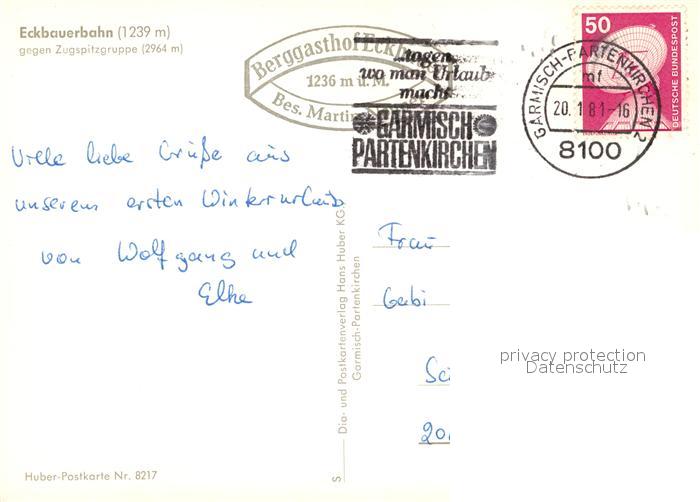 Eckbauerbahn (1239 m)
gegen Zugspitzgruppe (2964 m)
Berggasthof Eckb
1236 m ü. M.
Bes. Martin
...tagen,
wo man Urlaub
macht
GARMISCH
PARTENKIRCHEN
GARMISCH-PARTENKIRCHEN 2
mf
20.-1.81-16
8100
50
DEUTSCHE BUNDESPOST
Viele liebe Grüße aus
unserem ersten Winterurlaub
von Wolfgang und
Elke
Dia- und Postkartenverlag Hans Huber KG
Garmisch-Partenkirchen
S
Frau
Gabi
privacy protection
Datenschutz
20
Huber-Postkarte Nr. 8217